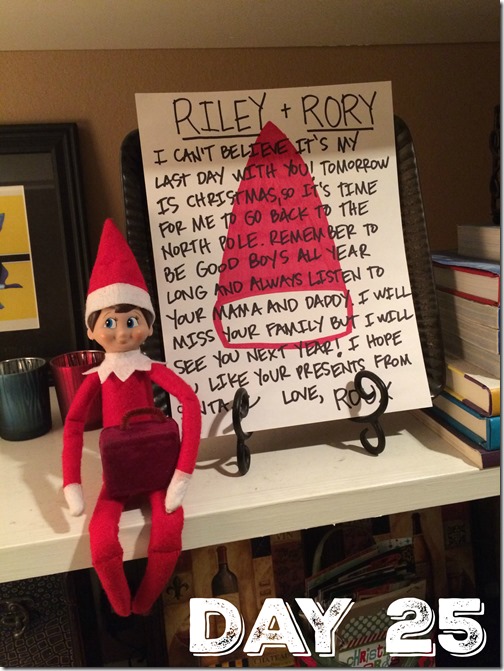 RILEY + RORY
I CAN'T BELIEVE IT'S MY
LAST DAY WITH YOU! TOMORROW
IS CHRISTMAS, SO IT'S TIME
FOR ME TO GO BACK TO THE
NORTH POLE. REMEMBER TO
BE GOOD BOYS ALL YEAR
LONG AND ALWAYS LISTEN TO
YOUR MAMA AND DADDY. I WILL
MISS YOUR FAMILY BUT I WILL
SEE YOU NEXT YEAR! I HOPE
LIKE YOUR PRESENTS FROM
LOVE,
DAY 25